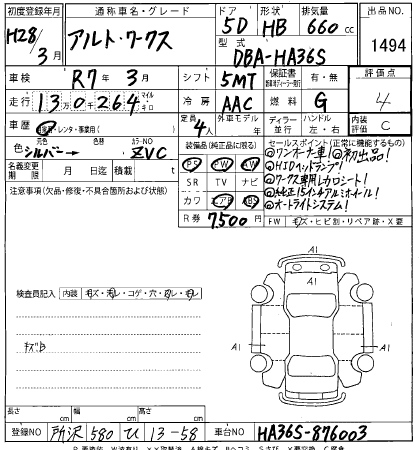 初度登録年月 通称車名・グレード ドア 形状 排気量 出品NO.
H28/3月 アルト・ワークス 5D HB 660cc 1494
型式 DBA-HA36S
車検 R7年3月 シフト 5MT 保証書 有・無 評価点
走行 13万0264 マイル キロ 冷房 AAC 燃料 G 4
車歴 自家用・レンタ・事業用( ) 定員 4人 外車モデル 年 ディーラー 並行 ハンドル 左・右 内装評価 C
色 元色 シルバー→ 色替 カラーNO ZVC 装備品(純正品に限る) セールスポイント(正常に機能するもの)
◎ワンオーナー車!◎初出品!
名義変更期限 月 日迄 積載 t PS PW AW ◎HIDヘッドランプ!
注意事項(欠品・修復・不具合箇所および状態) SR TV ナビ ◎ワークス専用レカロシート!
カワ エアB ABS ◎純正15インチアルミホイール!
◎オートライトシステム!
R券 7,500円 FW 無キズ・ヒビ割・リペア跡・X要
検査員記入 内装 キズ・汚レ・コゲ・穴・
A1
キズ小
A1 A1
A1
長さ cm 幅 cm 高さ cm
登録NO 所沢 580 ひ 13-58 車台NO HA36S-876003